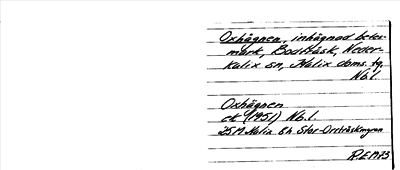 Oxhägnen, inhägnad betes-
mark, Bodträsk, Neder-
kalix sn, Kalix doms. tg,
Nb.l.
Oxhägnen
ek (1951) Nb.l.
25M Kalix 8h Stor-Orrträskmyran
R.E 1973